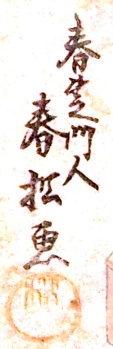 春芝門人
春松画